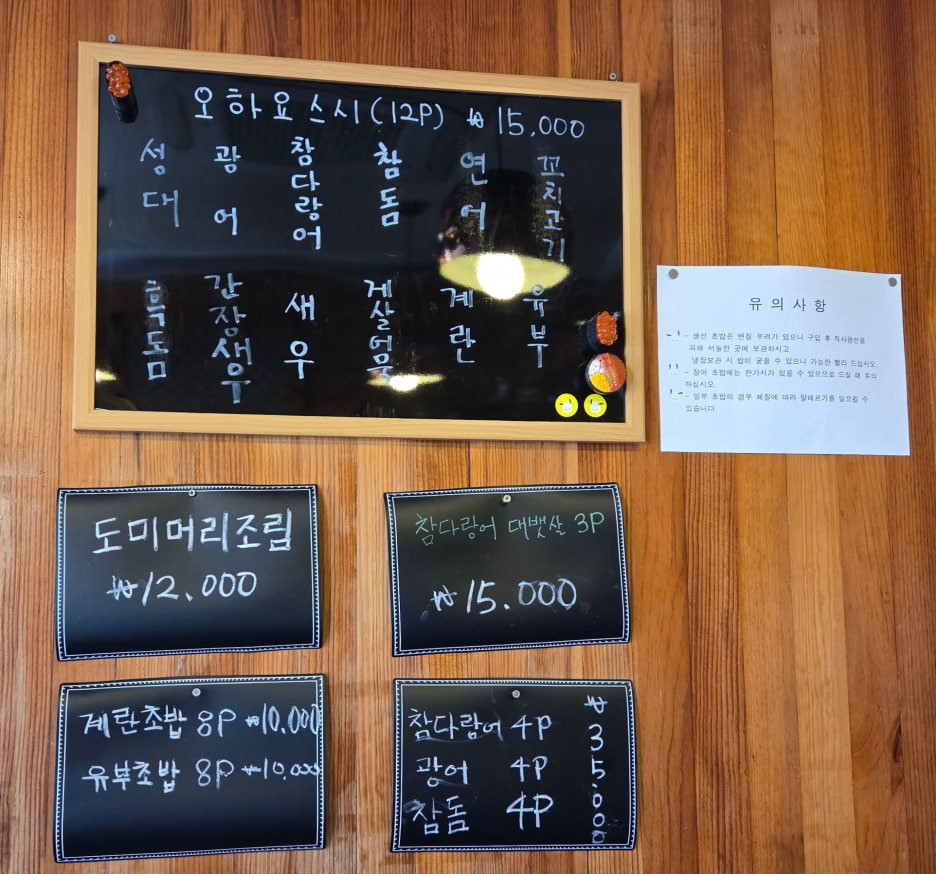 오하요스시(12P) ₩15,000
성대
광어
참다랑어
참돔
연어
꼬치고기
흑돔
간장새우
새우
게살어묵
계란
유부
유 의 사 항
- 생선 초밥은 변질 우려가 있으니 구입 후 직사광선을
피해 서늘한 곳에 보관하시고
냉장보관 시 밥이 굳을 수 있으니 가능한 빨리 드십시오.
- 장어 초밥에는 잔가시가 있을 수 있으므로 드실 때 유의
하십시오.
- 일부 초밥의 경우 체질에 따라 알레르기를 일으킬 수
있습니다.
도미머리조림
₩12.000
참다랑어 대뱃살 3P
₩15.000
계란초밥 8P ₩10.000
유부초밥 8P ₩10.000
참다랑어 4P
광어 4P
참돔 4P
₩35.000